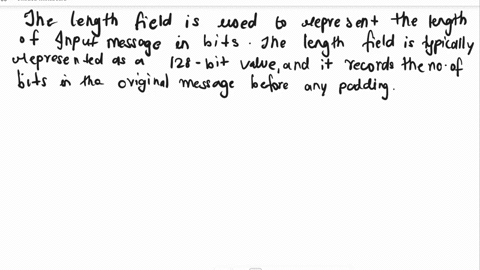 The length field is used to represent the length
of Input message in bits. The length field is typically
represented as a 128-bit value, and it records the no. of
bits in the original message before any padding.